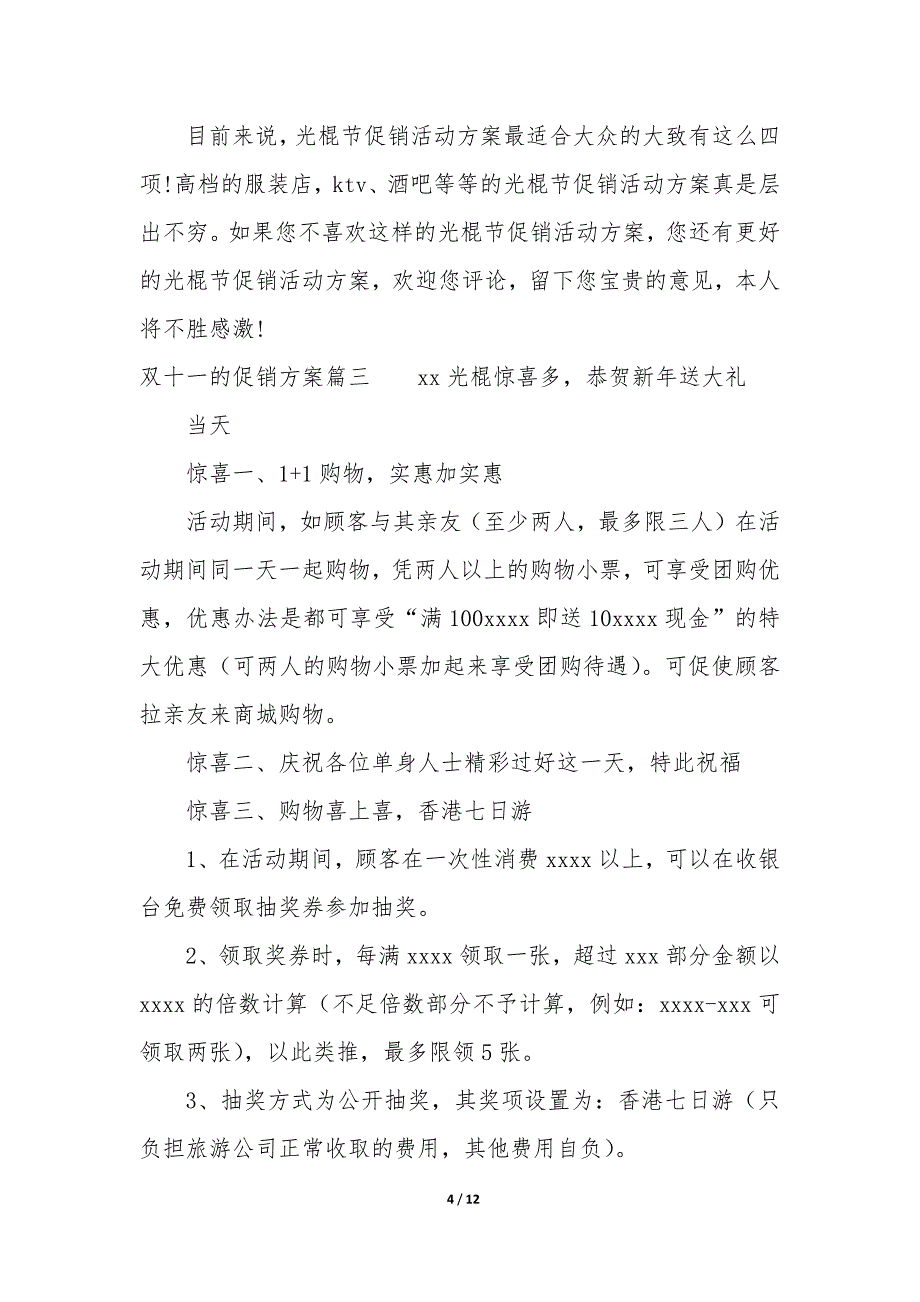 目前来说，光棍节促销活动方案最适合大众的大致有这么四
项!高档的服装店，ktv、酒吧等等的光棍节促销活动方案真是层
出不穷。如果您不喜欢这样的光棍节促销活动方案，您还有更好
的光棍节促销活动方案，欢迎您评论，留下您宝贵的意见，本人
将不胜感激!
双十一的促销方案篇三　　xx光棍惊喜多，恭贺新年送大礼
当天
惊喜一、1+1购物，实惠加实惠
活动期间，如顾客与其亲友（至少两人，最多限三人）在活
动期间同一天一起购物，凭两人以上的购物小票，可享受团购优
惠，优惠办法是都可享受“满100xxxx即送10xxxx现金”的特
大优惠（可两人的购物小票加起来享受团购待遇）。可促使顾客
拉亲友来商城购物。
惊喜二、庆祝各位单身人士精彩过好这一天，特此祝福
惊喜三、购物喜上喜，香港七日游
1、在活动期间，顾客在一次性消费xxxx以上，可以在收银
台免费领取抽奖券参加抽奖。
2、领取奖券时，每满xxxx领取一张，超过xxx部分金额以
xxxx的倍数计算（不足倍数部分不予计算，例如：xxxx-xxx可
领取两张），以此类推，最多限领5张。
3、抽奖方式为公开抽奖，其奖项设置为：香港七日游（只
负担旅游公司正常收取的费用，其他费用自负）。
4 / 12